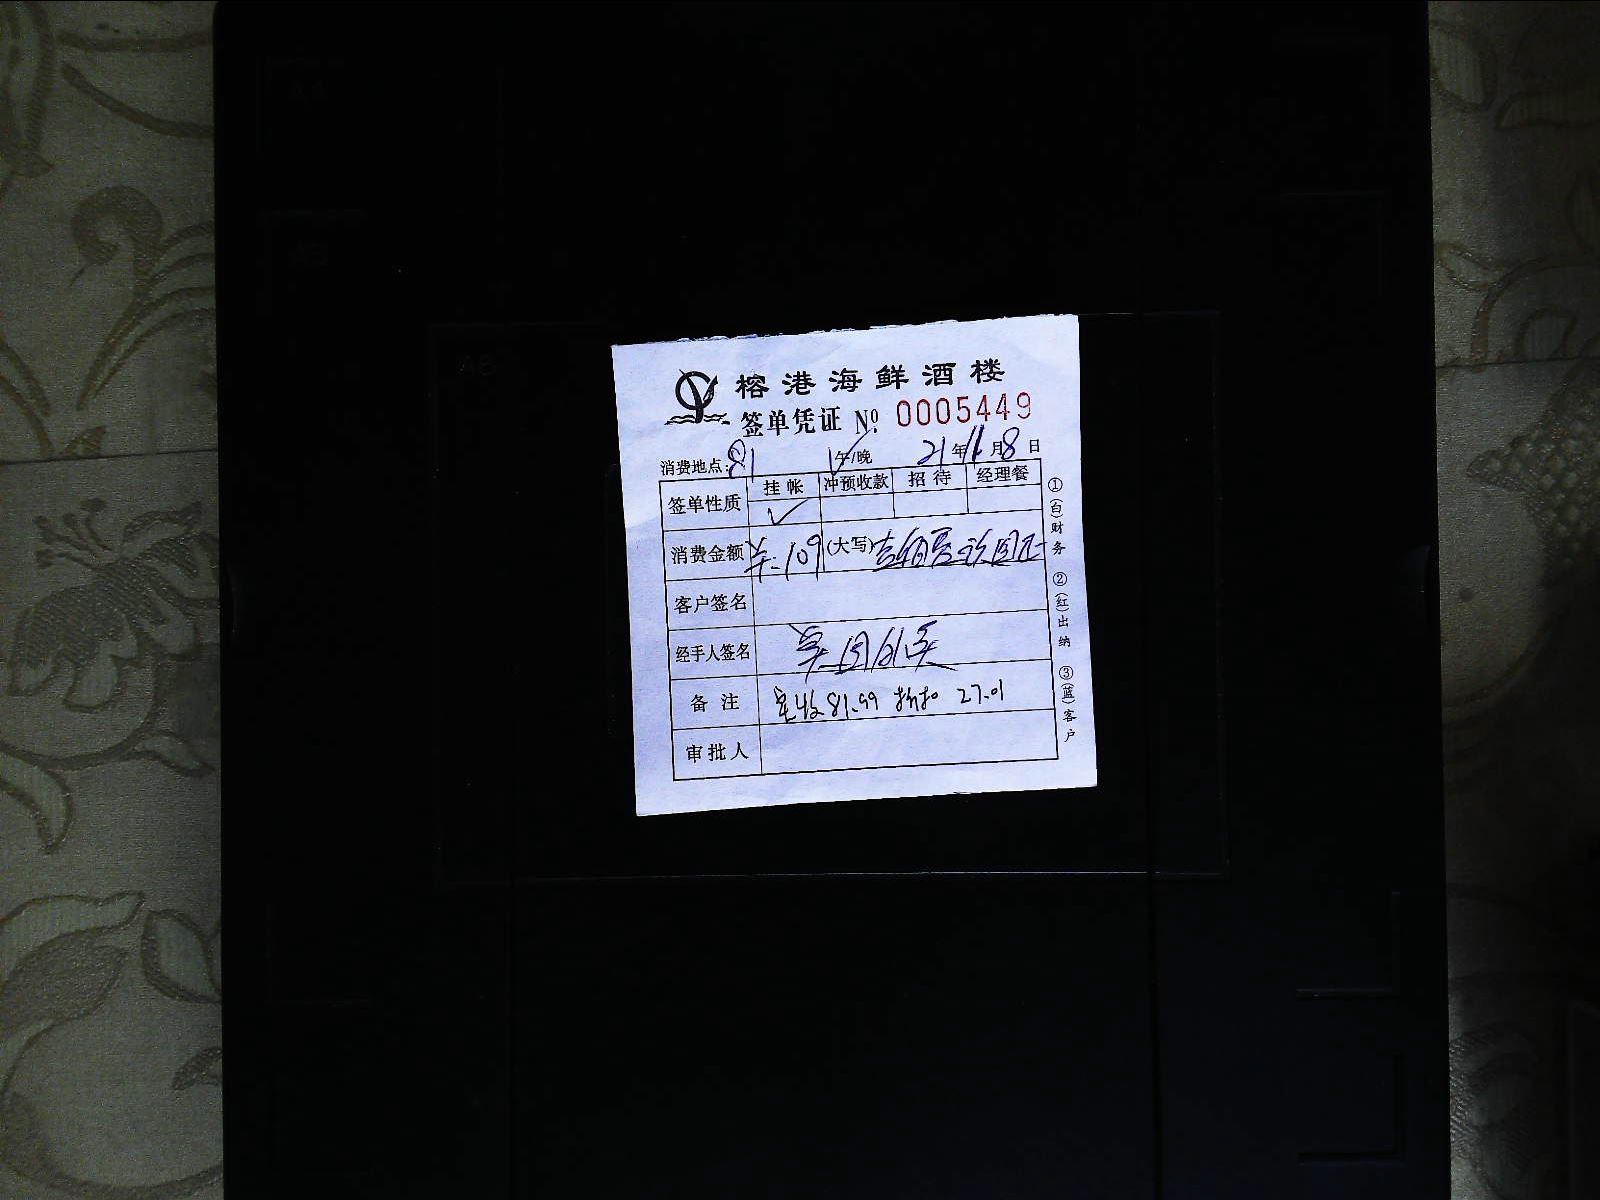 榕港海鲜酒楼
签单凭证 Nº: 0005449
消费地点: 81 午/晚 21年11月8日
签单性质 挂帐 冲预收款 招待 经理餐
✓
消费金额 ¥:109 (大写) 壹佰零玖圆正
客户签名
经手人签名 美团外卖
备注 实收81.99 折扣 27.01
审批人
①(白)财务 ②(红)出纳 ③(蓝)客户
A8